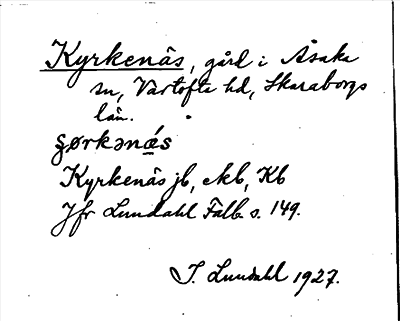 Kyrkenäs, gård i Åsaka
sn, Vartofta hd, Skaraborgs
län.
Kyrkenäs jb, Mb, Kb
Jfr Lundahl Falb. s. 149.
I. Lundahl 1927.